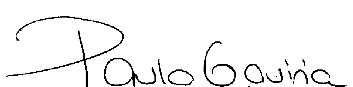 Paulo Gaviria